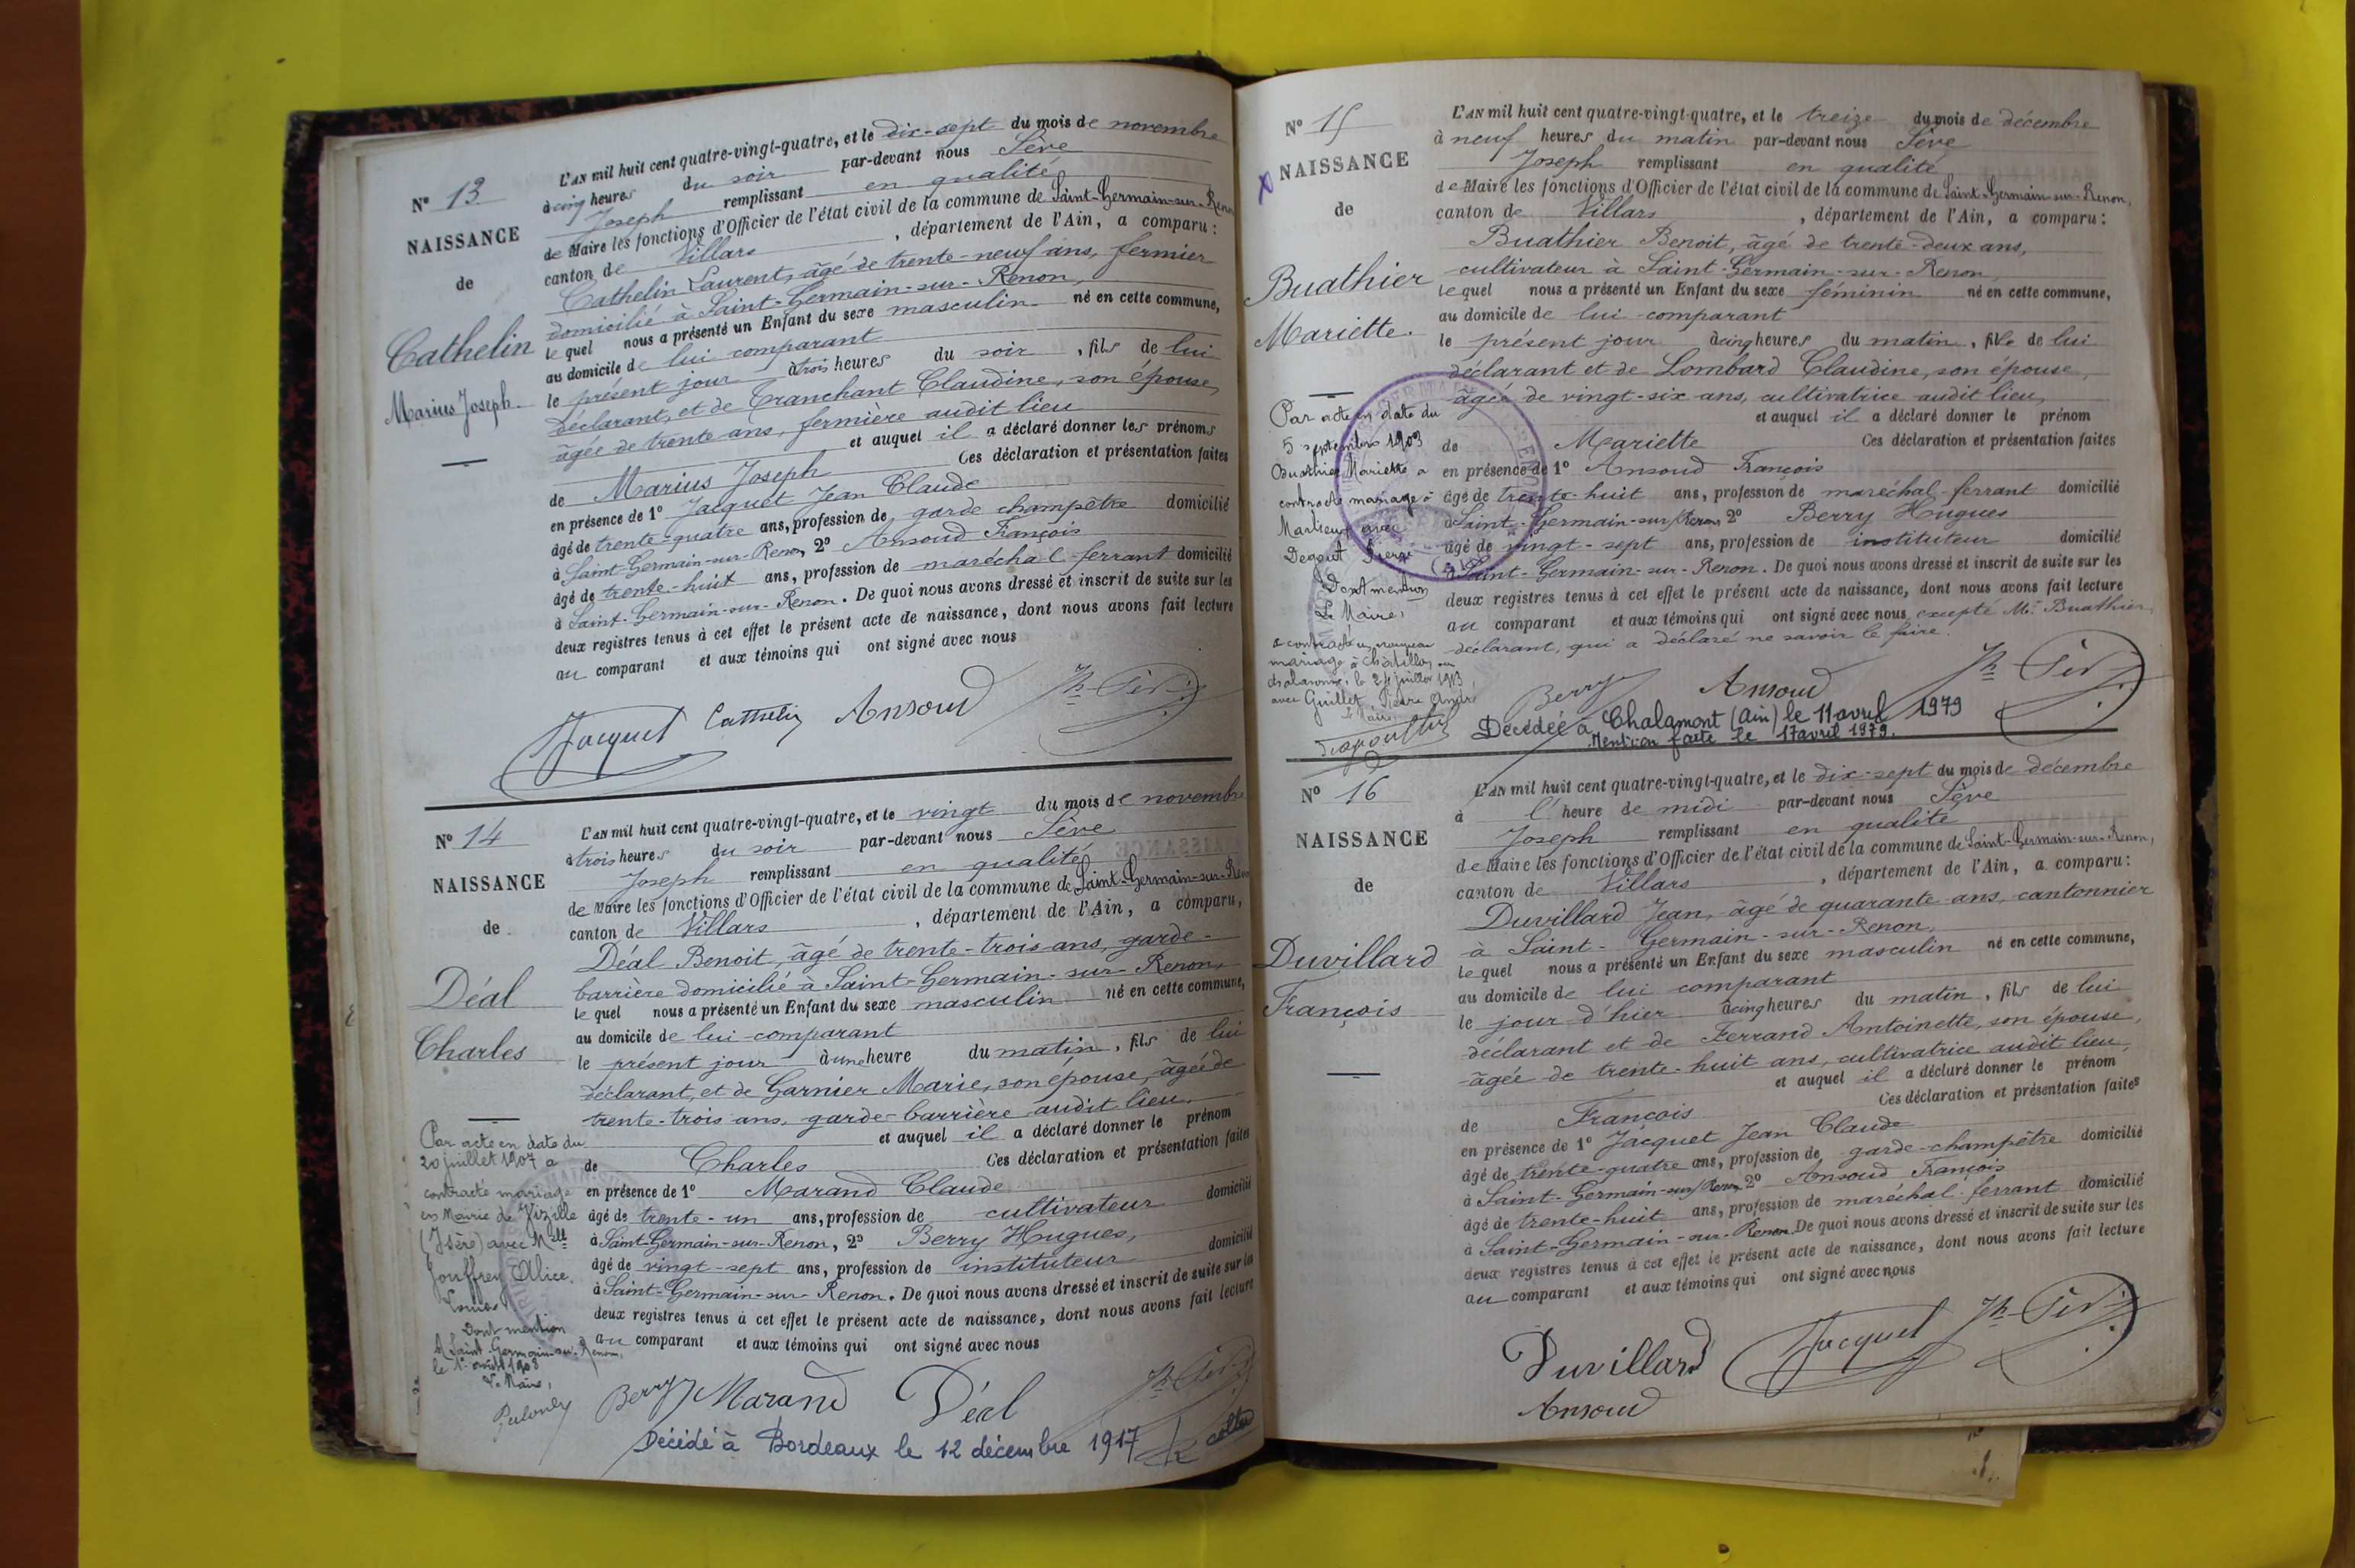 N° 13
NAISSANCE
de
Cathelin
Marius Joseph
L'AN mil huit cent quatre-vingt-quatre, et le dix-sept du mois de novembre
à cinq heures du soir par-devant nous Sève
Joseph remplissant en qualité
de Maire les fonctions d'Officier de l'état civil de la commune de Saint-Germain-sur-Renon
canton de Villars, département de l'Ain, a comparu :
Cathelin Laurent, âgé de trente-neuf ans, fermier
domicilié à Saint-Germain-sur-Renon,
lequel nous a présenté un Enfant du sexe masculin né en cette commune,
au domicile de lui comparant
le présent jour à trois heures du soir, fils de lui
déclarant, et de Tranchant Claudine, son épouse,
âgée de trente ans, fermière audit lieu
et auquel il a déclaré donner les prénoms
de Marius Joseph Ces déclaration et présentation faites
en présence de 1° Jacquet Jean Claude
âgé de trente-quatre ans, profession de garde champêtre domicilié
à Saint-Germain-sur-Renon, 2° Ansoud François
âgé de trente-huit ans, profession de maréchal-ferrant domicilié
à Saint-Germain-sur-Renon. De quoi nous avons dressé et inscrit de suite sur les
deux registres tenus à cet effet le présent acte de naissance, dont nous avons fait lecture
au comparant et aux témoins qui ont signé avec nous
Jacquet Cathelin Ansoud Jh Sève
N° 14
NAISSANCE
de
Déal
Charles
L'AN mil huit cent quatre-vingt-quatre, et le vingt du mois de novembre
à trois heures du soir par-devant nous Sève
Joseph remplissant en qualité
de Maire les fonctions d'Officier de l'état civil de la commune de Saint-Germain-sur-Renon
canton de Villars, département de l'Ain, a comparu,
Déal Benoit, âgé de trente-trois ans, garde-
barrière domicilié à Saint-Germain-sur-Renon,
lequel nous a présenté un Enfant du sexe masculin né en cette commune,
au domicile de lui comparant
le présent jour à une heure du matin, fils de lui
déclarant, et de Garnier Marie, son épouse, âgée de
trente-trois ans, garde-barrière audit lieu,
et auquel il a déclaré donner le prénom
de Charles Ces déclaration et présentation faites
en présence de 1° Marand Claude
âgé de trente-un ans, profession de cultivateur domicilié
à Saint-Germain-sur-Renon, 2° Berry Hugues,
âgé de vingt-sept ans, profession de instituteur domicilié
à Saint-Germain-sur-Renon. De quoi nous avons dressé et inscrit de suite sur les
deux registres tenus à cet effet le présent acte de naissance, dont nous avons fait lecture
au comparant et aux témoins qui ont signé avec nous
Par acte en date du
20 juillet 1907 a
contracté mariage
en Mairie de Vizille
(Isère) avec Melle
Jouffrey Alice
Dont mention
A Saint-Germain-sur-Renon,
le 1er août 1908
Le Maire,
Berry Marand Déal Jh Sève
Décédé à Bordeaux le 12 décembre 1917
N° 15
NAISSANCE
de
Buathier
Mariette.
L'AN mil huit cent quatre-vingt-quatre, et le treize du mois de décembre
à neuf heures du matin par-devant nous Sève
Joseph remplissant en qualité
de Maire les fonctions d'Officier de l'état civil de la commune de Saint-Germain-sur-Renon,
canton de Villars, département de l'Ain, a comparu :
Buathier Benoit, âgé de trente-deux ans,
cultivateur à Saint-Germain-sur-Renon
lequel nous a présenté un Enfant du sexe féminin né en cette commune,
au domicile de lui comparant
le présent jour à cinq heures du matin, fille de lui
déclarant et de Lombard Claudine, son épouse,
âgée de vingt-six ans, cultivatrice audit lieu,
et auquel il a déclaré donner le prénom
de Mariette Ces déclaration et présentation faites
en présence de 1° Ansoud François
âgé de trente-huit ans, profession de maréchal-ferrant domicilié
à Saint-Germain-sur-Renon 2° Berry Hugues
âgé de vingt-sept ans, profession de instituteur domicilié
à Saint-Germain-sur-Renon. De quoi nous avons dressé et inscrit de suite sur les
deux registres tenus à cet effet le présent acte de naissance, dont nous avons fait lecture
au comparant et aux témoins qui ont signé avec nous, excepté Mr Buathier
déclarant, qui a déclaré ne savoir le faire.
Par acte en date du
5 septembre 1903
Buathier Mariette a
contracté mariage à
Marlieux avec
Degout Pierre
Dont mention
Le Maire,
a contracté un nouveau
mariage à Châtillon sur
Chalaronne, le 24 juillet 1913,
avec Guillet, Pierre André
Le Maire
Berry Ansoud Jh Sève
Décédée à Chalamont (Ain) le 11 avril 1979
Mention faite le 17 avril 1979.
N° 16
NAISSANCE
de
Duvillard
François
L'AN mil huit cent quatre-vingt-quatre, et le dix-sept du mois de décembre
à l'heure de midi par-devant nous Sève
Joseph remplissant en qualité
de Maire les fonctions d'Officier de l'état civil de la commune de Saint-Germain-sur-Renon,
canton de Villars, département de l'Ain, a comparu :
Duvillard Jean, âgé de quarante ans, cantonnier
à Saint-Germain-sur-Renon,
lequel nous a présenté un Enfant du sexe masculin né en cette commune,
au domicile de lui comparant
le jour d'hier à cinq heures du matin, fils de lui
déclarant et de Ferrand Antoinette, son épouse,
âgée de trente-huit ans, cultivatrice audit lieu,
et auquel il a déclaré donner le prénom
de François Ces déclaration et présentation faites
en présence de 1° Jacquet Jean Claude
âgé de trente-quatre ans, profession de garde-champêtre domicilié
à Saint-Germain-sur-Renon 2° Ansoud François
âgé de trente-huit ans, profession de maréchal-ferrant domicilié
à Saint-Germain-sur-Renon. De quoi nous avons dressé et inscrit de suite sur les
deux registres tenus à cet effet le présent acte de naissance, dont nous avons fait lecture
au comparant et aux témoins qui ont signé avec nous
Duvillard Jacquet Jh Sève
Ansoud